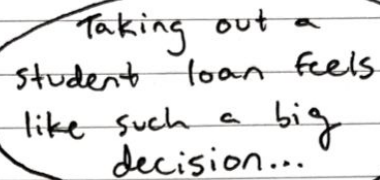 Taking out a
student loan feels
like such a big
decision...